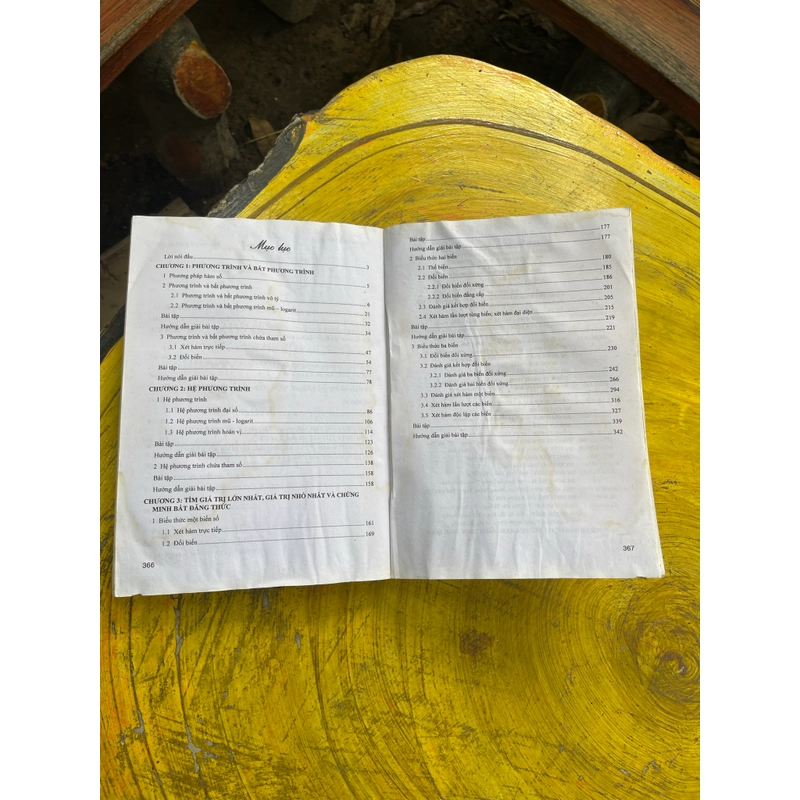 Mục lục
Lời nói đầu 3
CHƯƠNG 1: PHƯƠNG TRÌNH VÀ BẤT PHƯƠNG TRÌNH
1 Phương pháp hàm số 5
2 Phương trình và bất phương trình
2.1 Phương trình và bất phương trình vô tỷ 6
2.2 Phương trình và bất phương trình mũ - logarit 21
Bài tập 32
Hướng dẫn giải bài tập 34
3 Phương trình và bất phương trình chứa tham số
3.1 Xét hàm trực tiếp 47
3.2 Đổi biến 54
Bài tập 77
Hướng dẫn giải bài tập 78
CHƯƠNG 2: HỆ PHƯƠNG TRÌNH
1 Hệ phương trình
1.1 Hệ phương trình đại số 86
1.2 Hệ phương trình mũ - logarit 106
1.3 Hệ phương trình hoán vị 114
Bài tập 123
Hướng dẫn giải bài tập 126
2 Hệ phương trình chứa tham số 138
Bài tập 158
Hướng dẫn giải bài tập 158
CHƯƠNG 3: TÌM GIÁ TRỊ LỚN NHẤT, GIÁ TRỊ NHỎ NHẤT VÀ CHỨNG
MINH BẤT ĐẲNG THỨC
1 Biểu thức một biến số
1.1 Xét hàm trực tiếp 161
1.2 Đổi biến 169
366
Bài tập 177
Hướng dẫn giải bài tập 177
2 Biểu thức hai biến
2.1 Thế biến 180
2.2 Đổi biến 185
2.2.1 Đổi biến đối xứng 186
2.2.2 Đổi biến đẳng cấp 201
2.3 Đánh giá kết hợp đổi biến 205
2.4 Xét hàm lần lượt từng biến; xét hàm đại diện 215
Bài tập 219
Hướng dẫn giải bài tập 221
3 Biểu thức ba biến
3.1 Đổi biến đối xứng 230
3.2 Đánh giá kết hợp đổi biến
3.2.1 Đánh giá ba biến đối xứng 242
3.2.2 Đánh giá hai biến đối xứng 266
3.3 Đánh giá xét hàm một biến 294
3.4 Xét hàm lần lượt các biến 316
3.5 Xét hàm độc lập các biến 327
Bài tập 339
Hướng dẫn giải bài tập 342
367